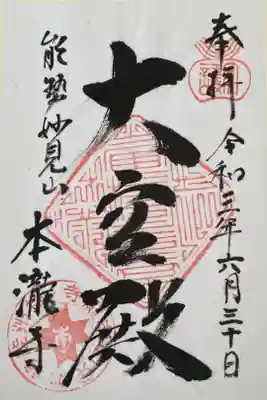 奉拝 令和三年六月三十日
大空殿
能勢妙見山
本瀧寺